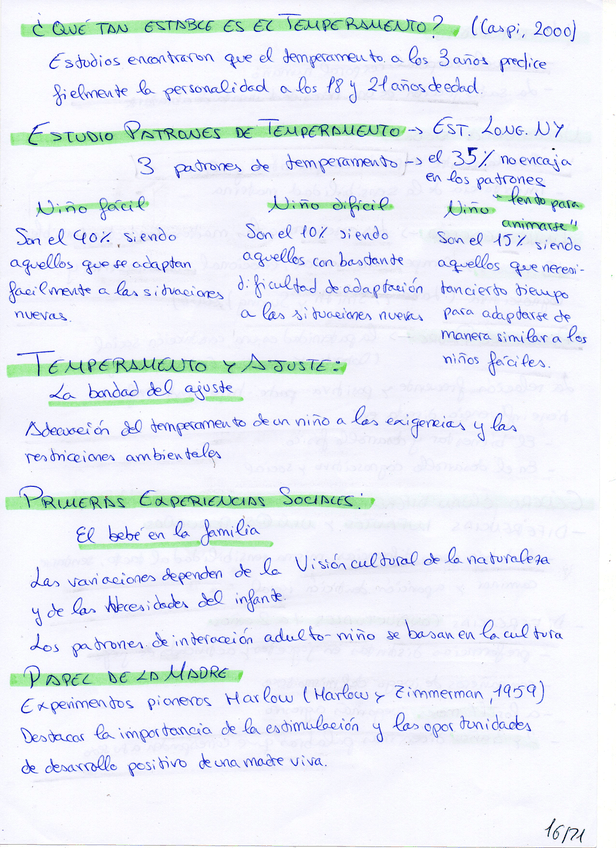 ¿QUÉ TAN ESTABLE ES EL TEMPERAMENTO? (Caspi, 2000)
Estudios encontraron que el temperamento a los 3 años predice
fielmente la personalidad a los 18 y 21 años de edad.
ESTUDIO PATRONES DE TEMPERAMENTO → EST. LONG. NY
3 patrones de temperamento → el 35% no encaja
en los patrones
Niño fácil
Son el 40%, siendo
aquellos que se adaptan
facilmente a las situaciones
nuevas.
Niño difícil
Son el 10% siendo
aquellos con bastante
dificultad de adaptación
a las situaciones nuevas
Niño "lento para
animarse"
Son el 15% siendo
aquellos que necesi-
tan cierto tiempo
para adaptarse de
manera similar a los
niños fáciles.
TEMPERAMENTO Y AJUSTE:
La bondad del ajuste
Adecuación del temperamento de un niño a las exigencias y las
restricciones ambientales
PRIMERAS EXPERIENCIAS SOCIALES:
El bebé en la familia
Las variaciones dependen de la Visión cultural de la naturaleza
y de las Necesidades del infante.
Los patrones de interacción adulto-niño se basan en la cultura
PAPEL DE LA MADRE
Experimentos pioneros Harlow (Harlow y Zimmerman, 1959)
Destacar la importancia de la estimulación y las oportunidades
de desarrollo positivo de una madre viva.
16/21